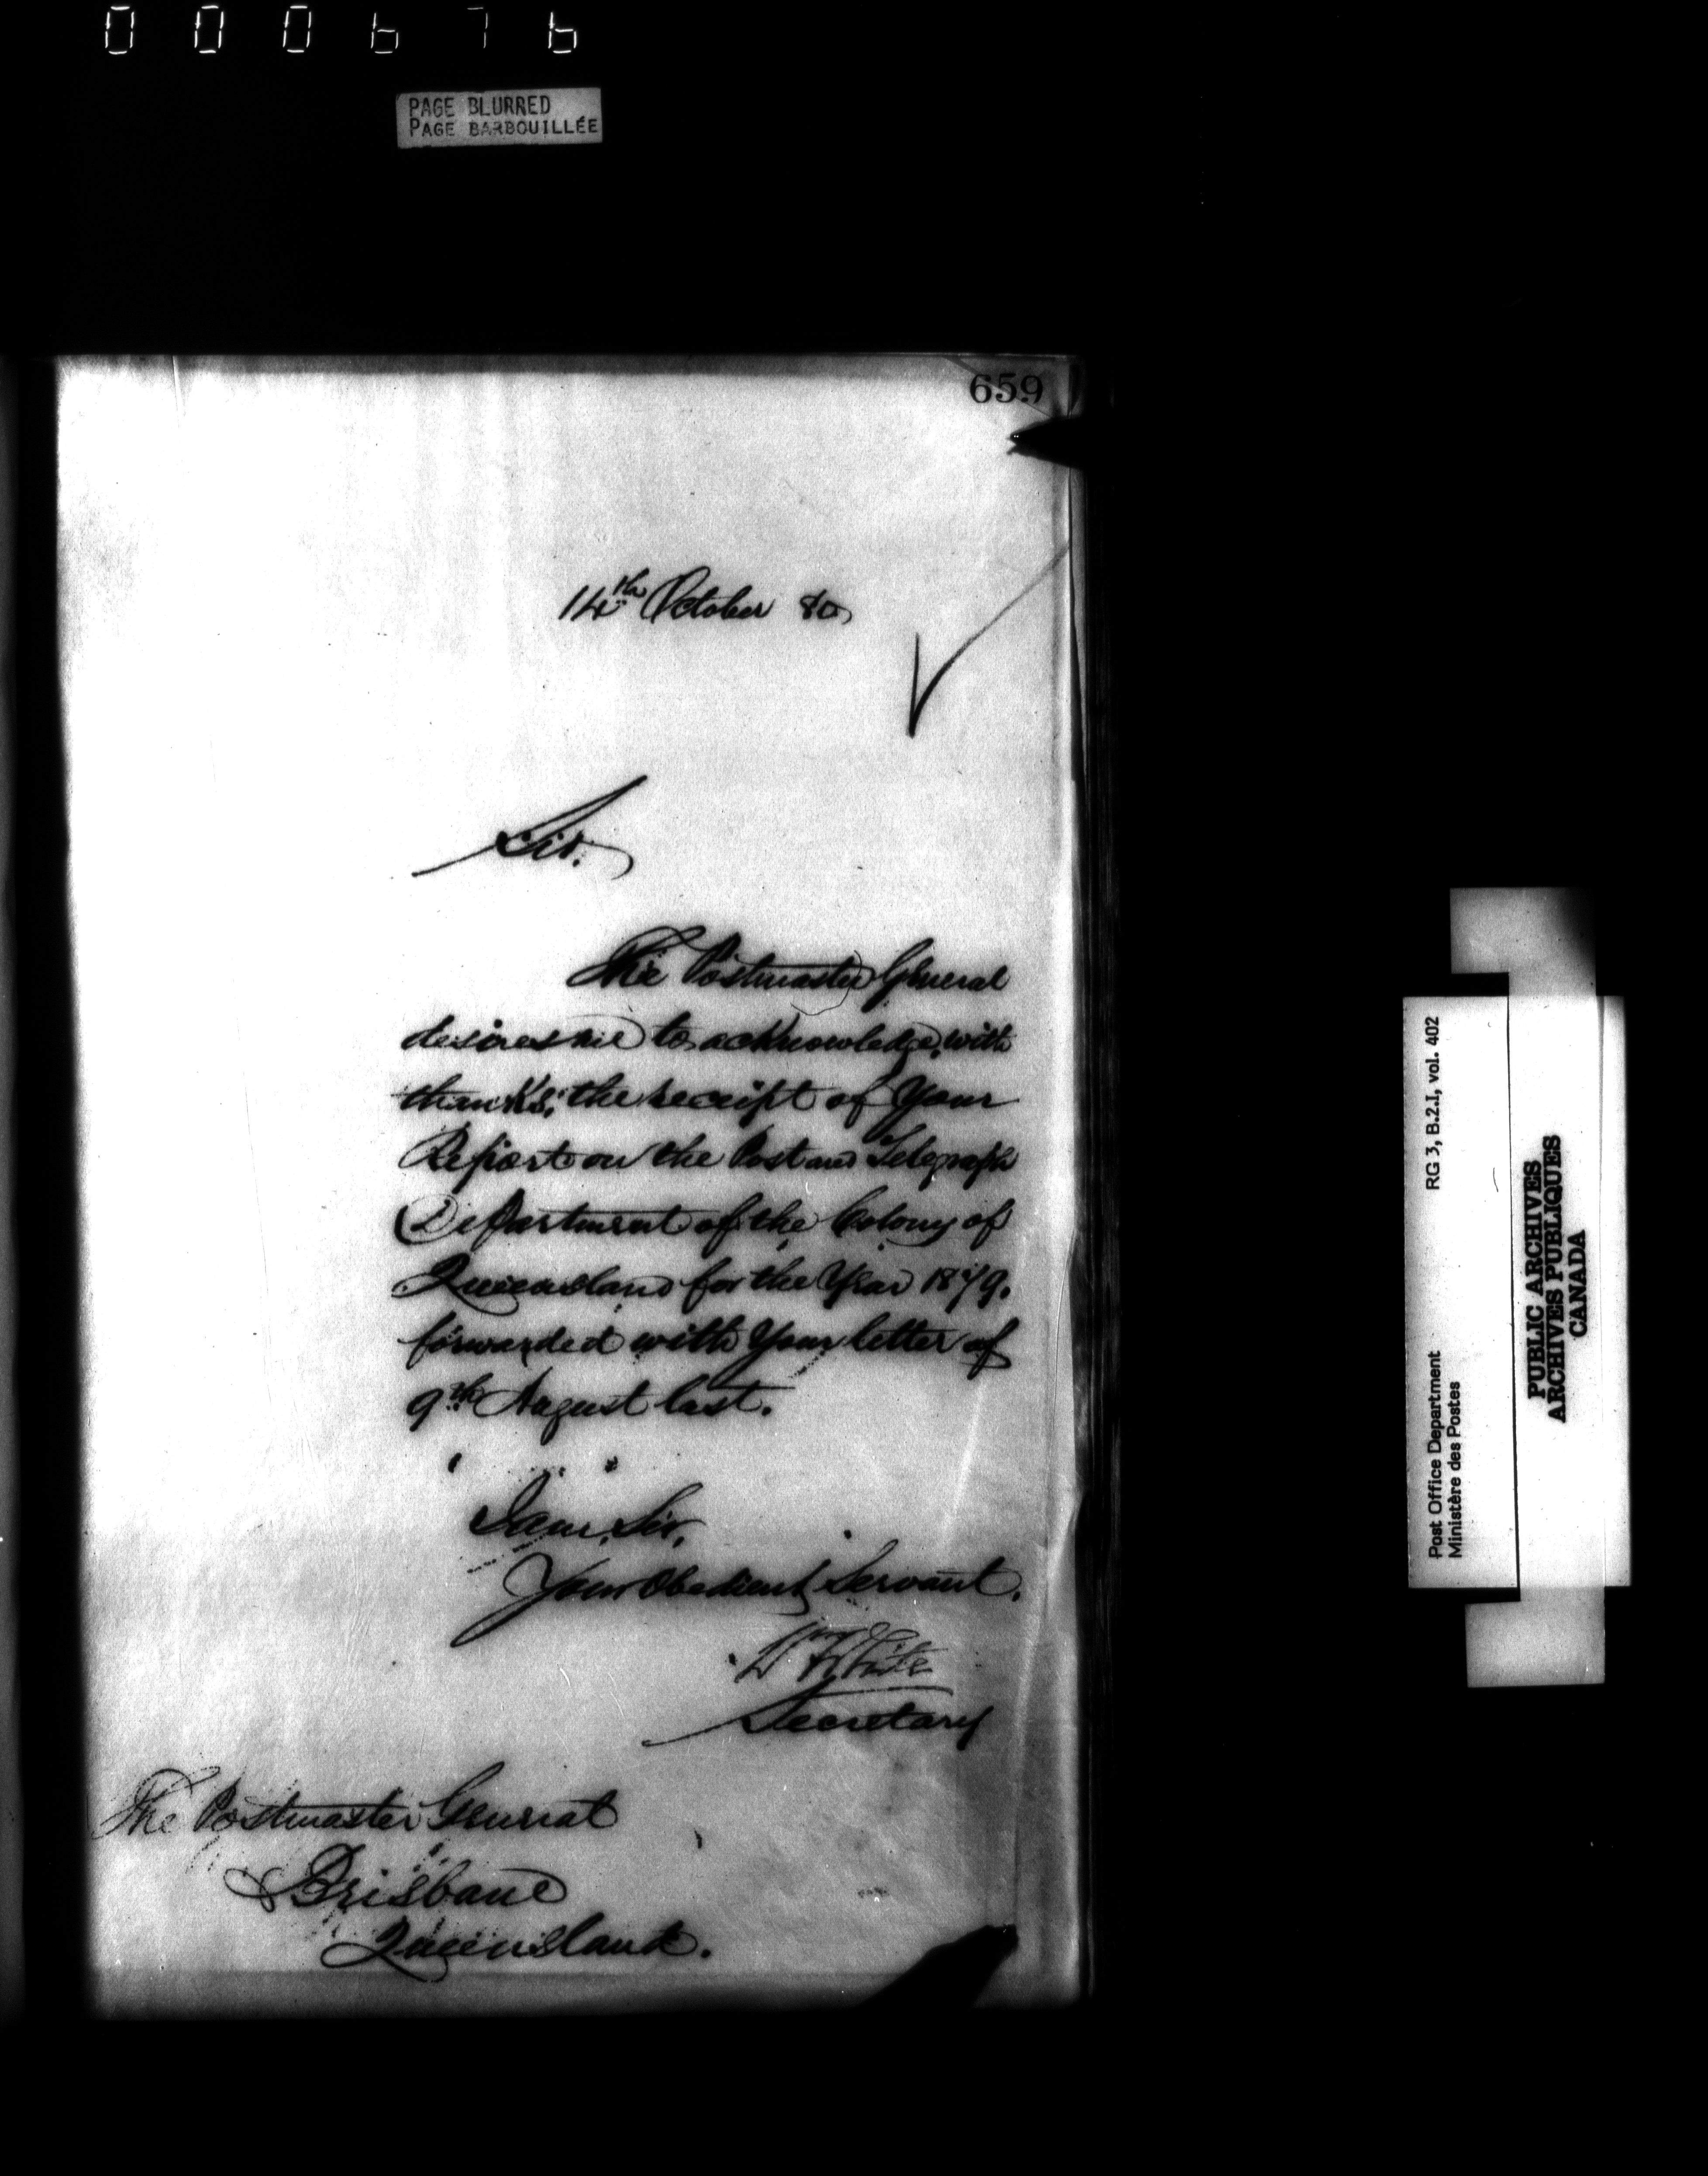 000676
PAGE BLURRED
PAGE BARBOUILLÉE
659
14th October 80,
Sir.
The Postmaster General
desires me to acknowledge, with
thanks, the receipt of Your
Report on the Post and Telegraph
Department of the Colony of
Queensland for the Year 1879.
forwarded with Your letter of
9th August last.
I am, Sir,
Your Obedient Servant.
W White
Secretary
The Postmaster General
Brisbane
Queensland.
Post Office Department RG 3, B.2.I, vol. 402
Ministère des Postes
PUBLIC ARCHIVES
ARCHIVES PUBLIQUES
CANADA